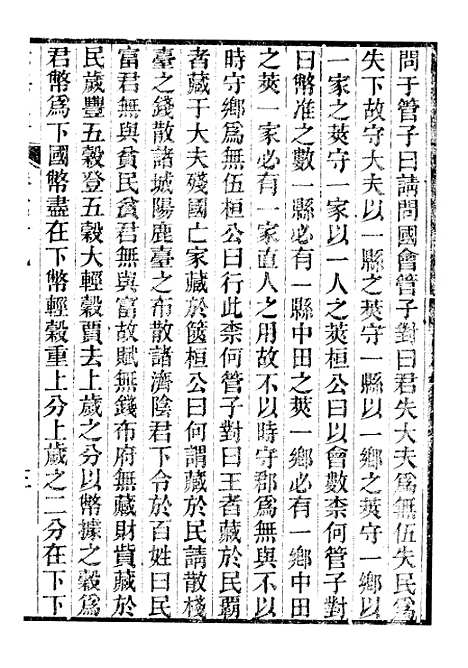 問于管子曰請問國會管子對曰君失大夫爲無伍失民爲
失下故守大夫以一縣之筴守一縣以一鄉之筴守一鄉以
一家之筴守一家以一人之筴桓公曰其會數柰何管子對
曰幣准之數一縣必有一縣中田之筴一鄉必有一鄉中田
之筴一家必有一家直人之用故不以時守郡爲無與不以
時守鄉爲無伍桓公曰行此柰何管子對曰王者藏於民霸
者藏于大夫殘國亡家藏於篋桓公曰何謂藏於民請散棧
臺之錢散諸城陽鹿臺之布散諸濟陰君下令於百姓曰民
富君無與貧民貧君無與富故賦無錢布府無藏財貲藏於
民歲豐五穀登五穀大輕穀賈去上歲之分以幣據之穀爲
君幣爲下國幣盡在下幣輕穀重上分上歲之二分在下下
三